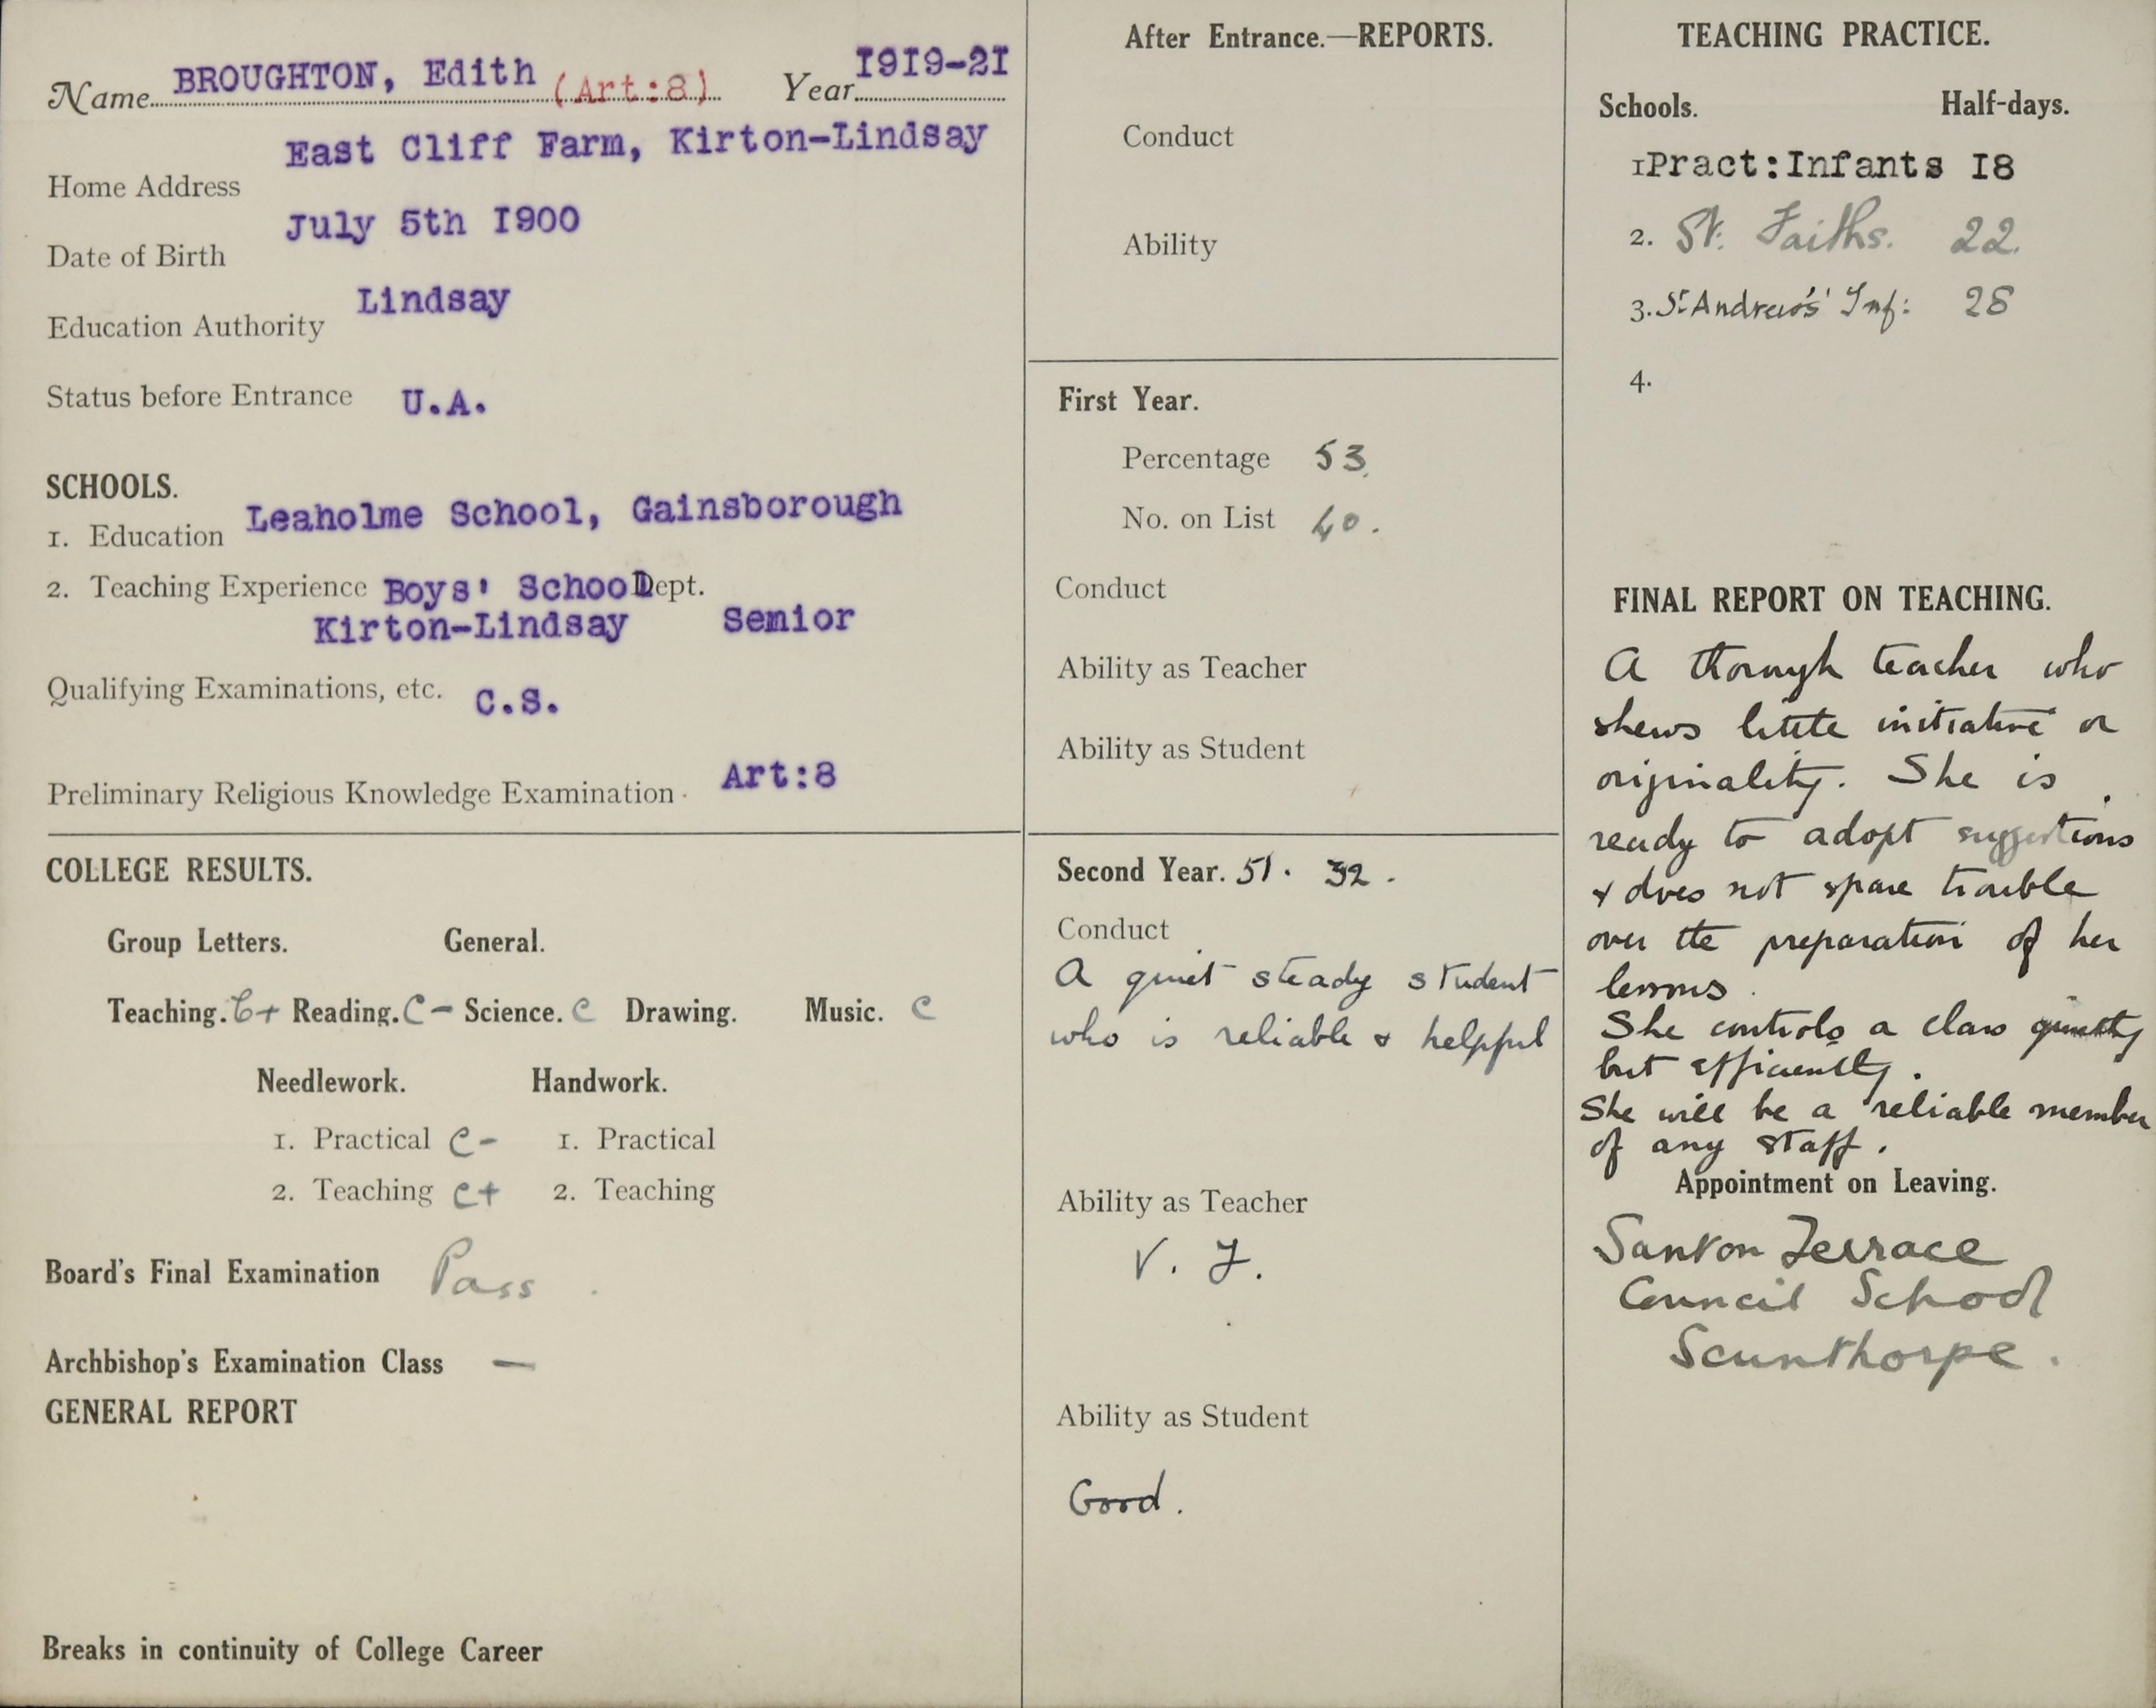 Name BROUGHTON, Edith (Art:8) Year 1919-21
Home Address East Cliff Farm, Kirton-Lindsay
Date of Birth July 5th 1900
Education Authority Lindsay
Status before Entrance U.A.
SCHOOLS.
1. Education Leaholme School, Gainsborough
2. Teaching Experience Boys' School Dept.
Kirton-Lindsay Senior
Qualifying Examinations, etc. C.S.
Preliminary Religious Knowledge Examination Art:8
COLLEGE RESULTS.
Group Letters. General.
Teaching. C+ Reading. C- Science. C Drawing. Music. C
Needlework. Handwork.
1. Practical C- 1. Practical
2. Teaching C+ 2. Teaching
Board's Final Examination Pass.
Archbishop's Examination Class —
GENERAL REPORT
Breaks in continuity of College Career
After Entrance.—REPORTS.
Conduct
Ability
First Year.
Percentage 53.
No. on List 40.
Conduct
Ability as Teacher
Ability as Student
Second Year. 51. 32.
Conduct
A quiet steady student
who is reliable & helpful
Ability as Teacher
V. F.
Ability as Student
Good.
TEACHING PRACTICE.
Schools. Half-days.
1 Pract:Infants 18
2. St. Faiths. 22.
3. St Andrew's' Inf: 28
4.
FINAL REPORT ON TEACHING.
A thorough teacher who
shews little initiative or
originality. She is
ready to adopt suggestions
& does not spare trouble
over the preparation of her
lessons.
She controls a class quietly
but efficiently.
She will be a reliable member
of any staff.
Appointment on Leaving.
Santon Terrace
Council School
Scunthorpe.